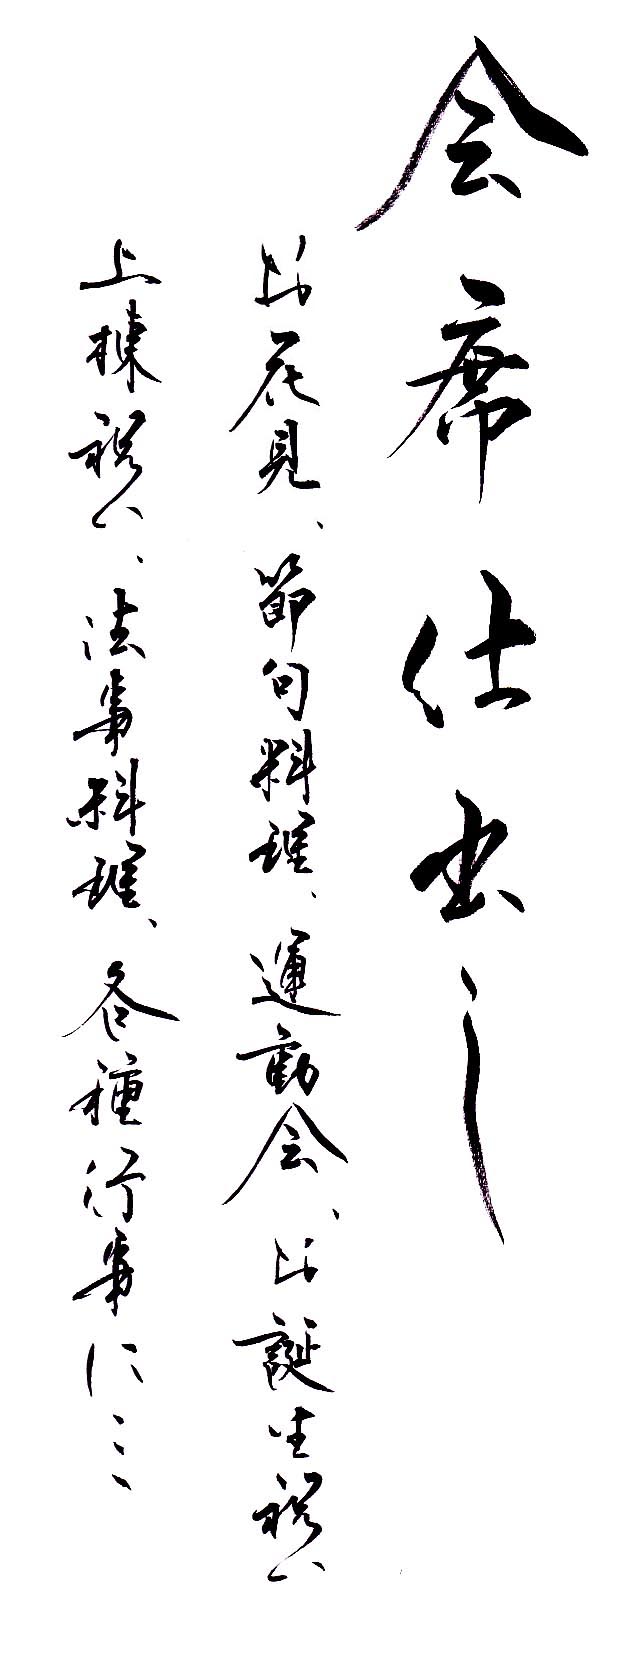 会席仕出し
お花見、節句料理、運動会、お誕生祝い
上棟祝い、法事料理、各種行事に…